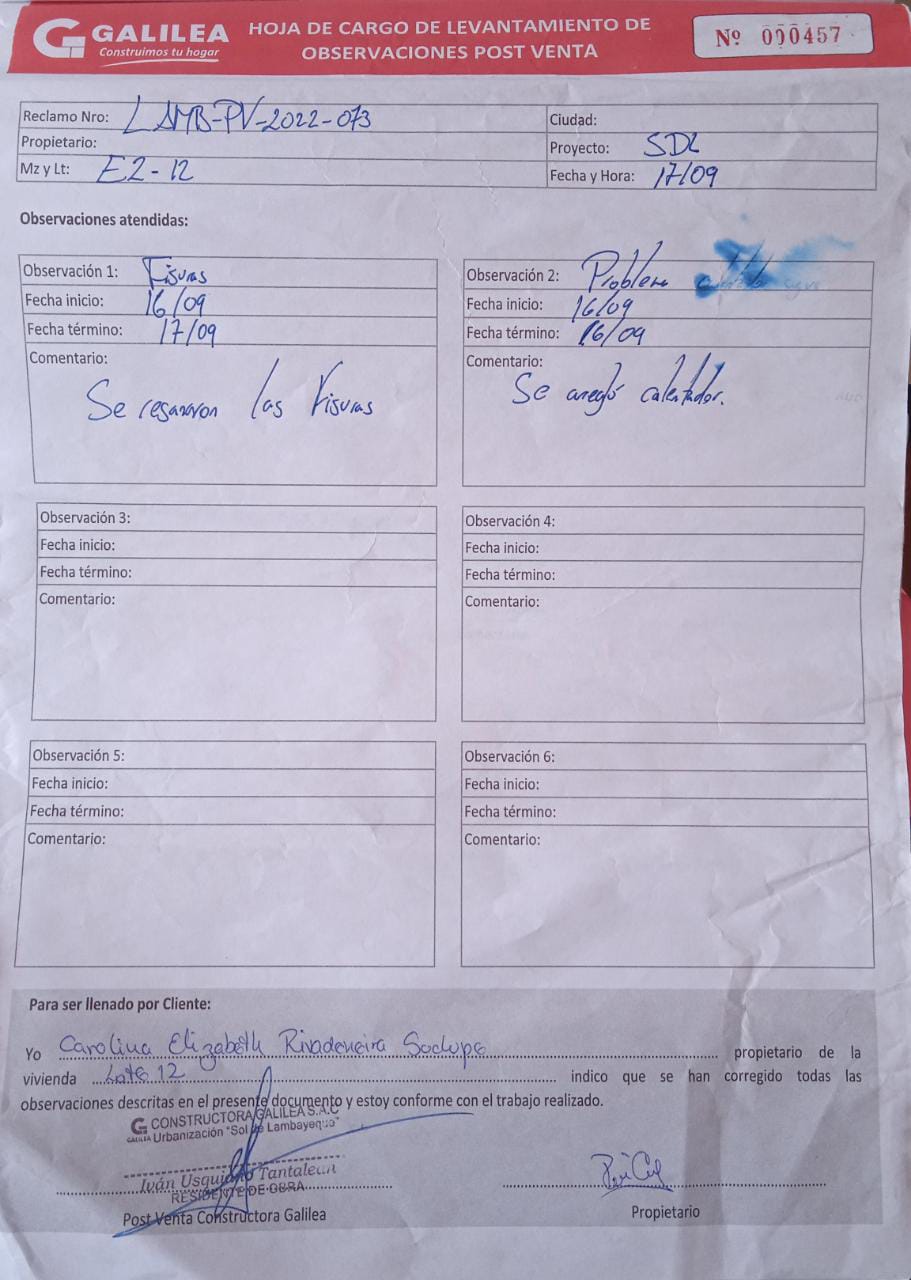 GALILEA
Construimos tu hogar
HOJA DE CARGO DE LEVANTAMIENTO DE
OBSERVACIONES POST VENTA
Nº 000457
Reclamo Nro: LAMB-PV-2022-073
Ciudad:
Propietario:
Proyecto: SDL
Mz y Lt: E2-12
Fecha y Hora: 17/09
Observaciones atendidas:
Observación 1: Fisuras
Fecha inicio: 16/09
Fecha término: 17/09
Comentario:
Se resanaron las Fisuras
Observación 2: Problema
Fecha inicio: 16/09
Fecha término: 16/09
Comentario:
Se arregló calentador.
Observación 3:
Fecha inicio:
Fecha término:
Comentario:
Observación 4:
Fecha inicio:
Fecha término:
Comentario:
Observación 5:
Fecha inicio:
Fecha término:
Comentario:
Observación 6:
Fecha inicio:
Fecha término:
Comentario:
Para ser llenado por Cliente:
Yo Carolina Elizabeth Rivadeneira Suclupe propietario de la
vivienda Lote 12 indico que se han corregido todas las
observaciones descritas en el presente documento y estoy conforme con el trabajo realizado.
CONSTRUCTORA GALILEA S.A.C
GALILEA Urbanización "Sol de Lambayeque"
Iván Tantalean
RESIDENTE DE OBRA
Post Venta Constructora Galilea
Propietario